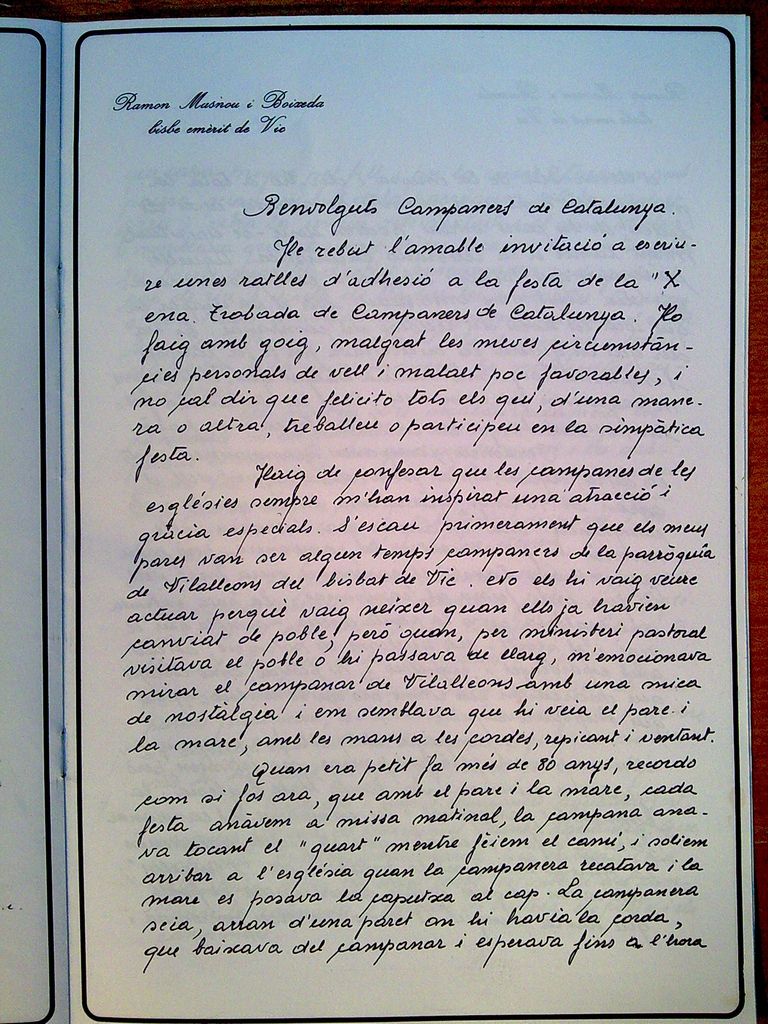 Ramon Masnou i Boixeda
bisbe emèrit de Vic
Benvolguts Campaners de Catalunya.
He rebut l'amable invitació a escriu-
re unes ratlles d'adhesió a la festa de la "X
ena. Trobada de Campaners de Catalunya. Ho
faig amb goig, malgrat les meves circumstàn-
cies personals de vell i malalt poc favorables, i
no cal dir que felicito tots els qui, d'una mane-
ra o altra, treballeu o participeu en la simpàtica
festa.
Haig de confesar que les campanes de les
esglésies sempre m'han inspirat una atracció i
gràcia especials. S'escau primerament que els meus
pares van ser algun temps campaners de la parròquia
de Vilalleons del bisbat de Vic. No els hi vaig veure
actuar perquè vaig néixer quan ells ja havien
canviat de poble, però quan, per ministeri pastoral
visitava el poble o hi passava de llarg, m'emocionava
mirar el campanar de Vilalleons amb una mica
de nostàlgia i em semblava que hi veia el pare i
la mare, amb les mans a les cordes, repicant i ventant.
Quan era petit fa més de 80 anys, recordo
com si fos ara, que amb el pare i la mare, cada
festa anàvem a missa matinal, la campana ana-
va tocant el "quart" mentre fèiem el camí, i soliem
arribar a l'església quan la campanera recatava i la
mare es posava la caputxa al cap. La campanera
seia, arran d'una paret on hi havia la corda,
que baixava del campanar i esperava fins a l'hora